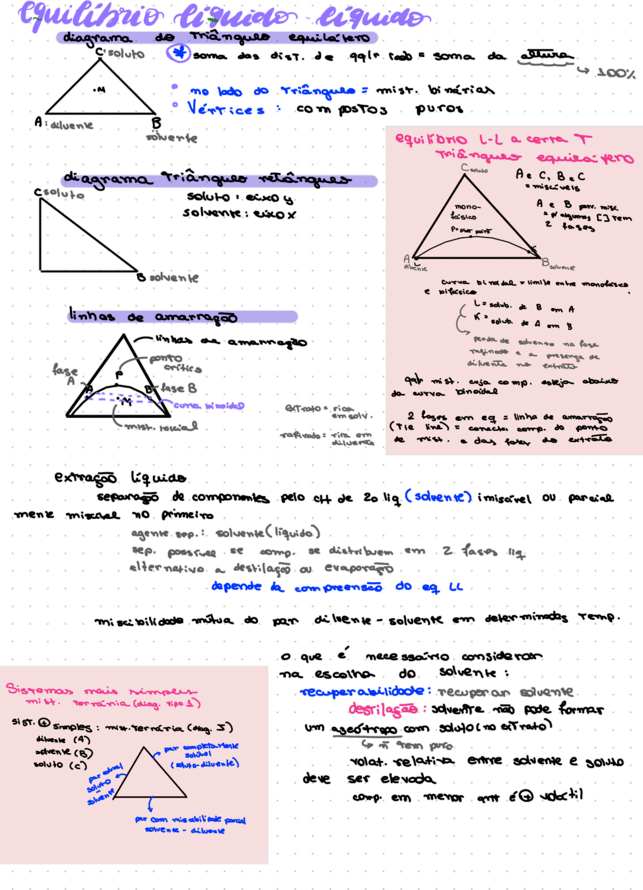 equilíbrio líquido líquido
diagrama do triângulo equilátero
C: soluto
* soma das dist. de qqlr lado = soma da altura
↳ 100%
•M
• no lado do triângulo = mist. binárias
• Vértices: compostos puros
A: diluente
B
solvente
equilíbrio L-L a certa T
triângulo equilátero
C soluto
A e C, B e C
= miscíveis
mono-
fásico
A e B parc. misc
= p/ algumas [ ] tem
2 fases
A
diluente
B solvente
curva binodal = limite entre monofásico
e bifásico
L = solub. de B em A
K = solub. de A em B
perda de solvente na fase
rafinado e a presença de
diluente no extrato
qqlr mist. cuja comp. esteja abaixo
da curva binodal
2 fases em eq = linha de amarração
(tie line) = conecta comp. do ponto
de mist. e das fases do extrato
diagrama triângulo retângulo
C soluto
soluto: eixo y
solvente: eixo x
B solvente
linhas de amarração
linhas de amarração
ponto
crítico
fase
A
P
A
B
fase B
M
curva binodal
mist. inicial
extrato = rica
em solv.
rafinado = rica em
diluente
extração líquido
separação de componentes pelo ctt de 2o liq (solvente) imiscível ou parcial
mente miscível no primeiro
agente sep.: solvente (líquido)
sep. possível se comp. se distribuem em 2 fases liq
alternativo a destilação ou evaporação
depende da compreensão do eq LL
miscibilidade mútua do par diluente-solvente em determinadas temp.
o que é necessário considerar
na escolha do solvente:
recuperabilidade: recuperar solvente
destilação: solvente não pode formar
um azeótropo com soluto (no extrato)
↳ ñ tem puro
volat. relativa entre solvente e soluto
deve ser elevada
comp. em menor qntt é ⊕ volátil
Sistemas mais simples
mist. ternária (diag. tipo 1)
sist. ⊕ simples: mist. ternária (diag. I)
diluente (A)
solvente (B)
soluto (C)
par completamente
solúvel
(soluto-diluente)
soluto
solvente
par com miscibilidade parcial
solvente - diluente